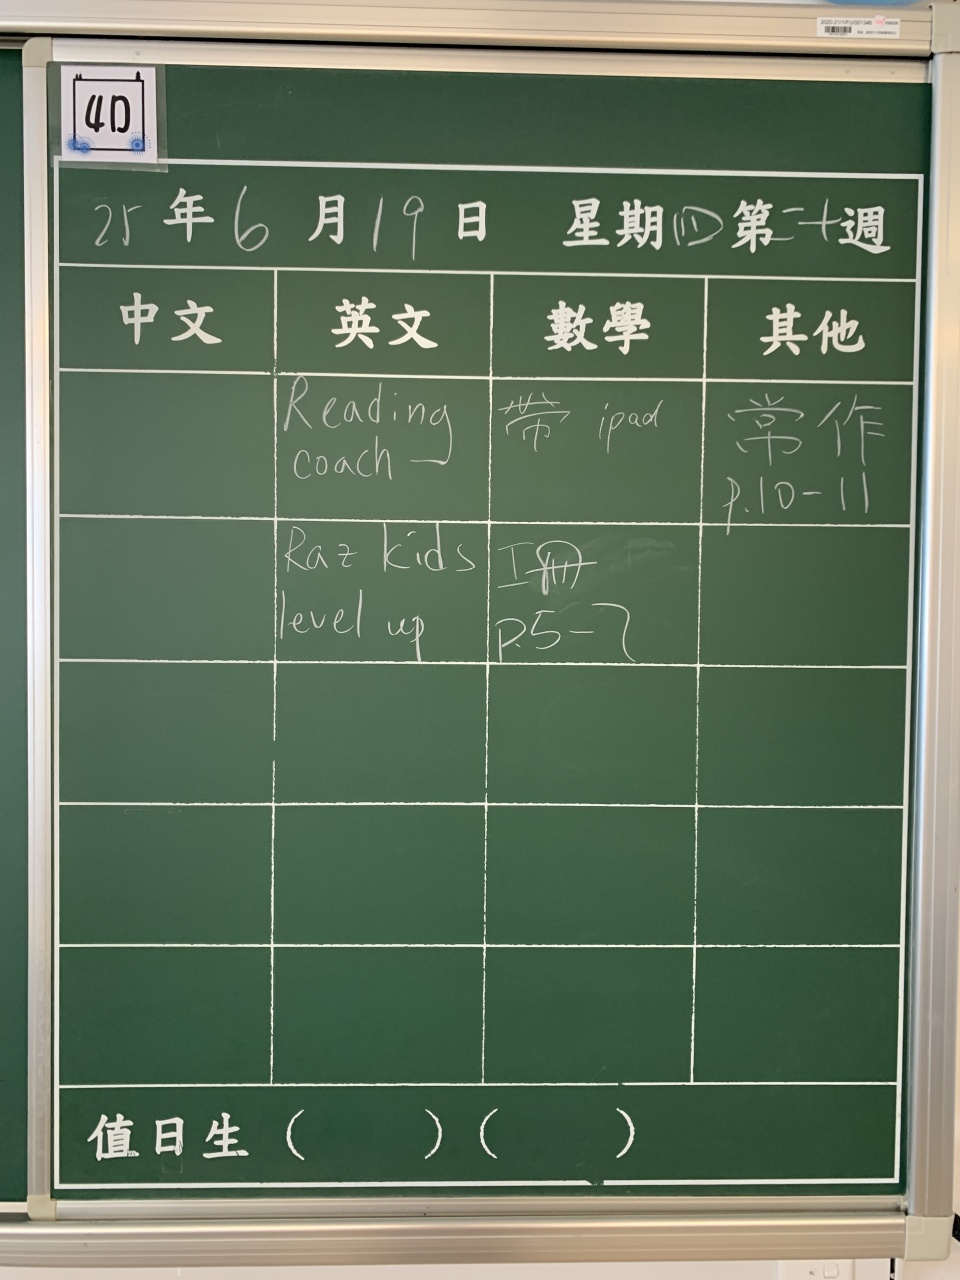 4D
25年6月19日 星期四第二十週
中文 英文 數學 其他
Reading coach
帶 ipad
常作 p.10-11
Raz kids level up
工冊 p.5-7
值日生 ( ) ( )